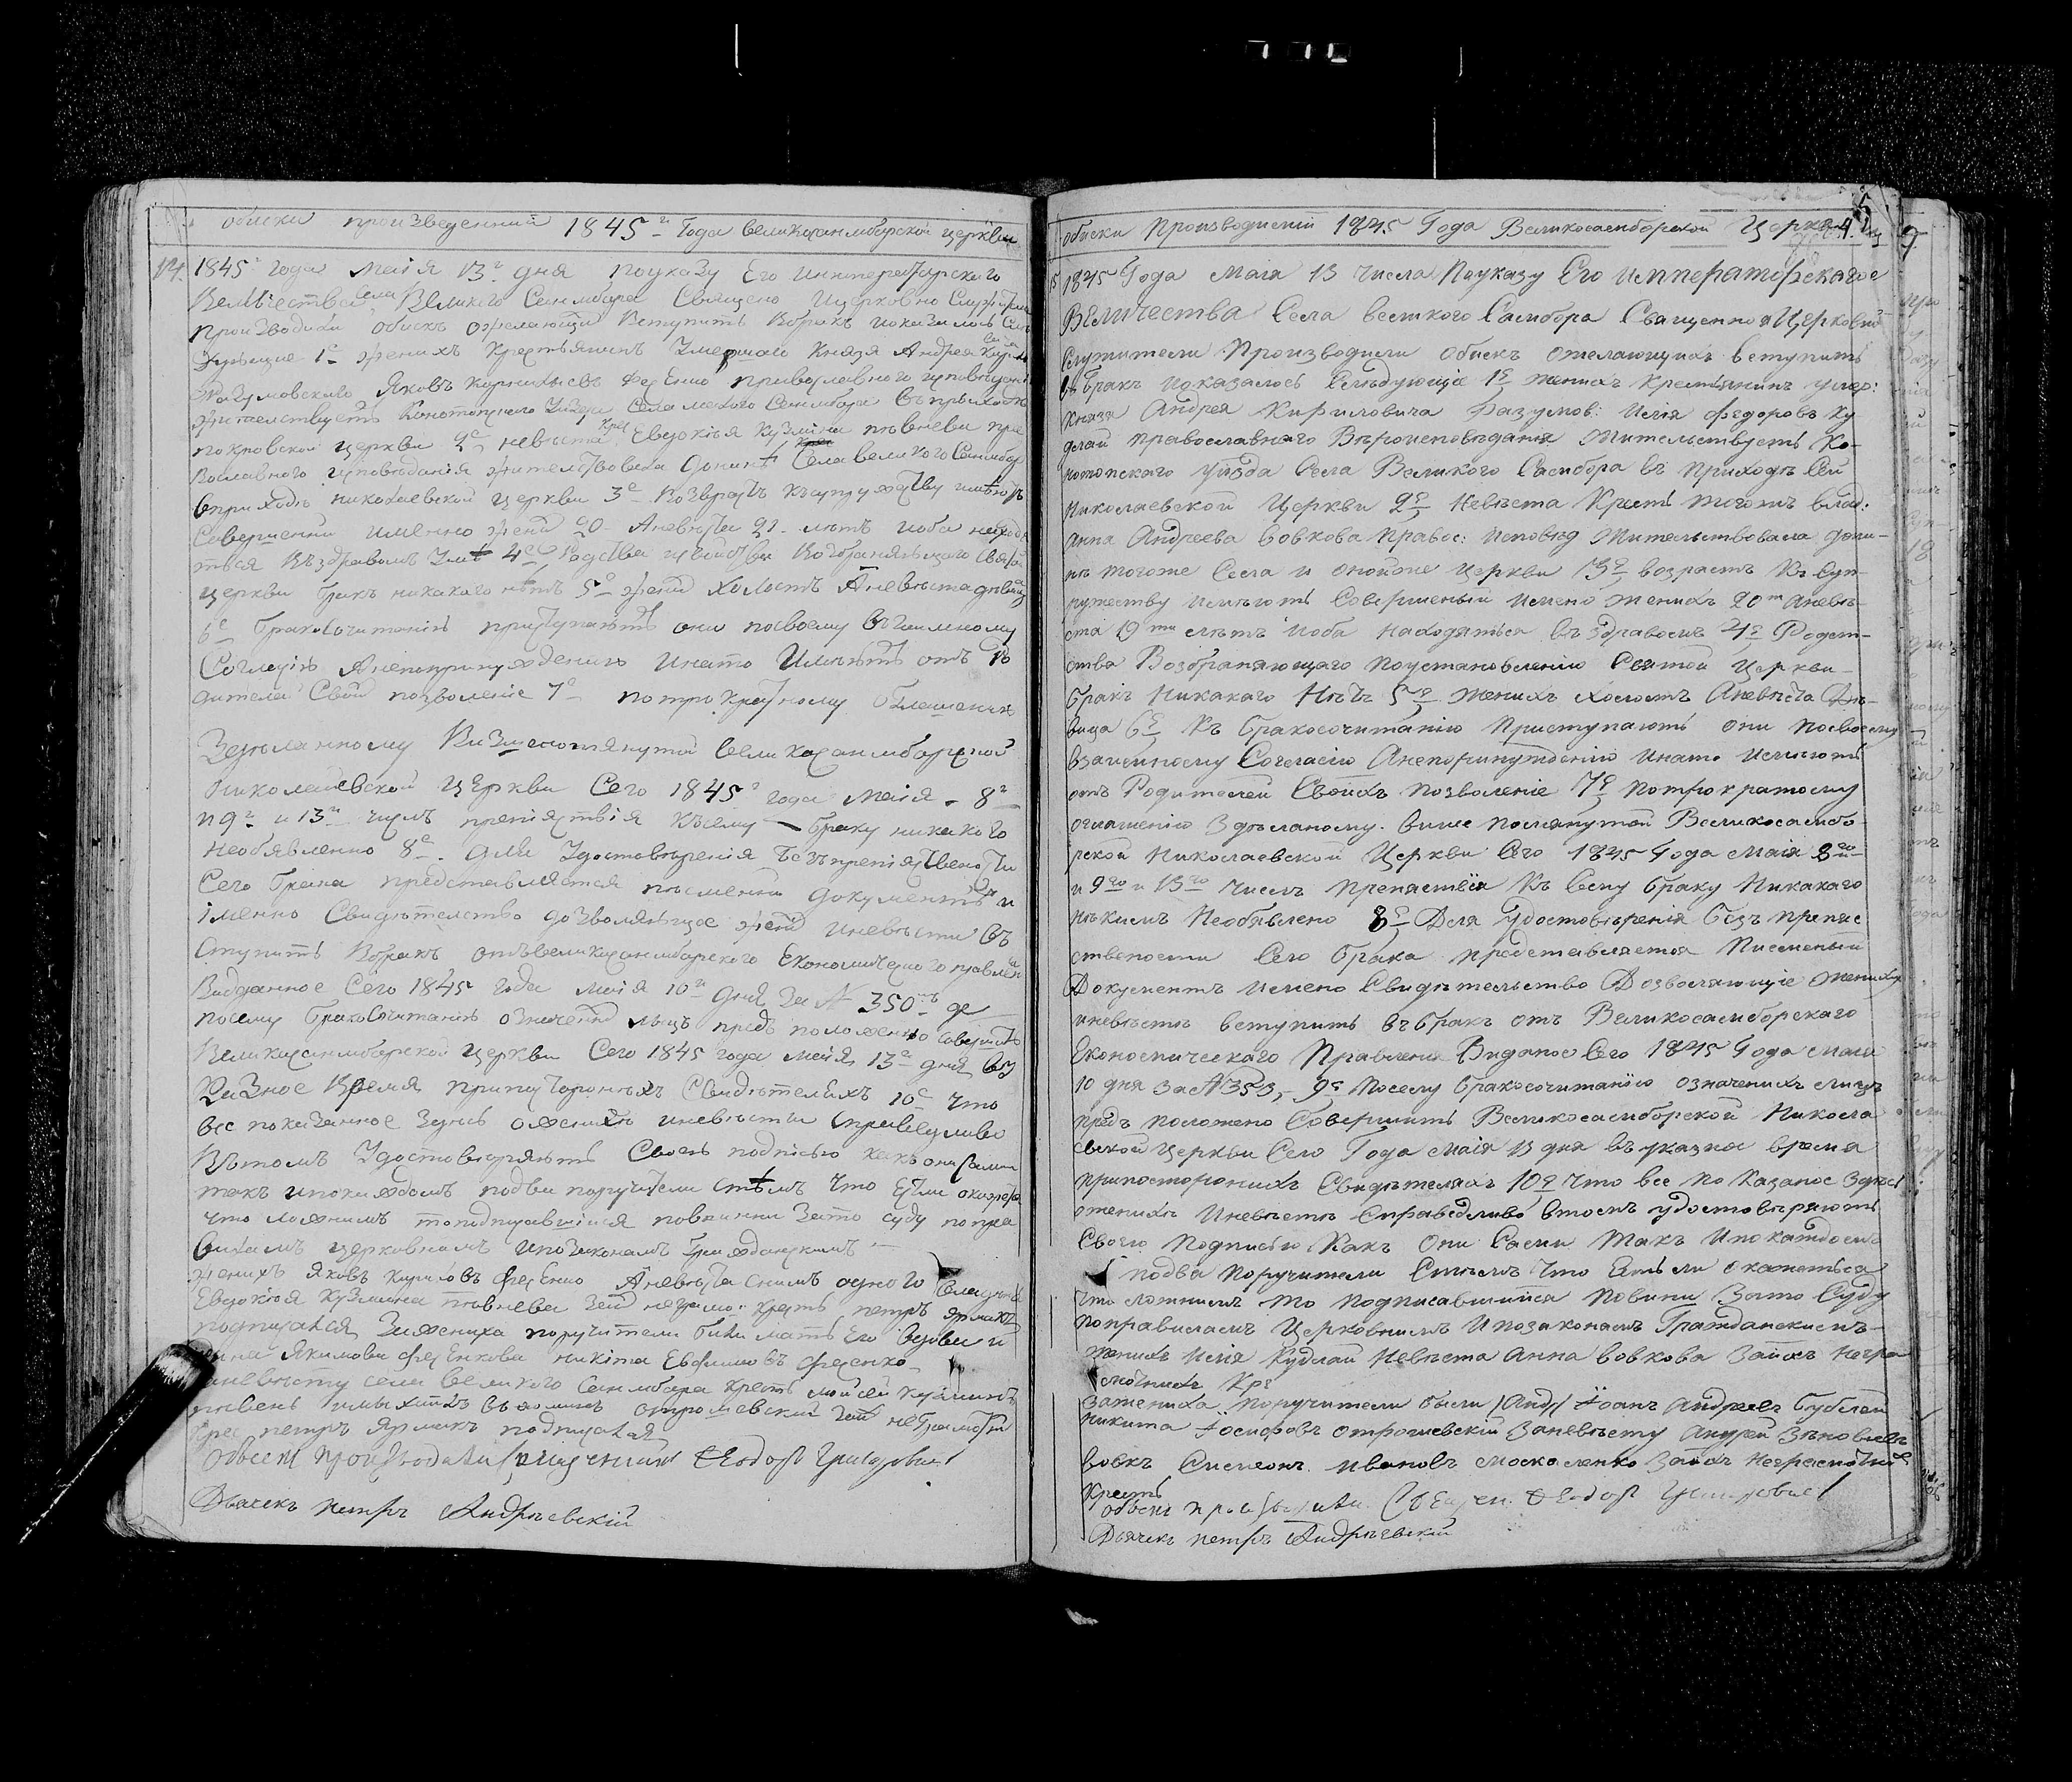 обиски произведенний 1845 г. Года великосамборской церкви
14. 1845 г года Маія 13 г дня поуказу Его Императорского
Величества села Великого Самбора Священо Ицерковно Служители
производили обискъ ожелающи Вступить Вбракъ иоказалось
1е женихъ Крестьянинъ Князя Андрея
Разумовского Яковъ православного исповѣданія
жителствуетъ Конотопского Уизда Села малого Самбора въприходѣ
покровской церкви 2е невѣста Крес Евдокія Кузміна пѣвнева пра
вославного исповѣданія жителствовала донинѣ Села великого Самбора
вприходѣ николаевской церкви 3е Возврастъ Ксупружеству имѣютъ
Совершенни именно жених 20 Аневѣста 21 лѣтъ иоба находя
тьса Въздравомъ Умѣ 4е Родства Возбраняющаго Святой
церкви бракъ никакого нѣтъ 5е жених холостъ Аневѣста дѣвица
6е Бракосочитанію приступаютъ они посвоему взаимному
Согласію Анепопринуждению Инато Имѣютъ отъ Ро
дителей Свои позволение 7е потрократному Оглашению
Зделанному Вишепомянутой великосамборской
николаевской церкви Сего 1845 года Маія 8 г
и 9 г и 13 г числъ препятствія ксему браку никакого
необявленно 8е для Удостовѣренія безпрепятственности
Сего брака представляются писменни документъ и
іменно Свидѣтелство дозволяющее жених иневѣсти въ
ступить Вбракъ отъвеликосамборского Економического правлен
Виданное Сего 1845 года Маія 10 г дня За № 350 9е
посему Бракосочитанію означений лицъ предположено совершить
Великосамборской церкви Сего 1845 года Маія 13 г дня ву
казное Время припосторонихъ Свидѣтеляхъ 10е что
все показанное здесь ожених иневѣсти справедливо
Вътомъ Удостовѣряютъ Своею подписю какъ они сами
такъ ипокаждомъ подва поручители стѣмъ что Ежели окажется
что ложнимъ топодписавшіися повинни Зато суду попра
виламъ церковнимъ ипозаконамъ Гражданскимъ
женихъ Яковъ Аневѣста снимъ одного
Евдокія Кузмина пѣвнева петръ ярмакъ
подписался Зажениха поручители били мать Его вдова
Якимова никита Евфимовъ
аневѣсту села великого Самбора Крест мойсей кузминъ
пѣвень отрошевский неграмотни
крес петръ Ярмакъ подписался
Обиск производили священникъ Феодоръ Григоровичъ
Дьячекъ петръ Андрѣевскій
обиски Производиміи 1845 Года Великосамборской Церкви 4
15 1845 Года Маія 13 числа Поуказу Его Императорскагое
Величества Села великого Самбора Священно и Церковно
Служители Производили Обискъ ожелающихъ вступить
въ бракъ показалось Слѣдующіе 1е женихъ Крестьянинъ умер:
Князя Андрея Кириловича Разумов: Илія федоровъ Ку
длай православнаго Вѣроисповѣданія Жительствуетъ Ко-
нотопскаго Уѣзда Села Великого Самбора въ приходѣ Сей
николаевской Церкви 2е Невѣста Крест тогожъ влад:
Анна Андреева Вовкова правос: исповед Жительствовала дони-
нѣ тогоже Села и оноиже Церкви 3е возрастъ Къ Суп-
ружеству имѣютъ Совершеный имено женихъ 20 т Аневѣ-
ста 19 ти лѣтъ иоба находяться въ здравомъ 4е Родст-
ства Возбраняющаго Поустановленію Святой Церкви
бракъ Никакаго Нѣтъ 5е женихъ холостъ Аневѣста Дѣ-
вица 6е Къ бракосочитанію приступаютъ они посвоему
взаимному Согласію Анепопринуждению Инато Имѣютъ
отъ Родителей Своихъ позволеніе 7е потрократому
оглашению Здѣланому више помянутой Великосамбо-
рской Николаевской Церкви Сего 1845 Года Маія 8 го
и 9 го и 13 го числъ препятствія Къ Сему браку Никакаго
нѣкимъ Необявлено 8е Для Удостовѣренія безъ препяс
ствености Сего брака представляется Писменый
Документъ имено Свидѣтельство Дозволяющіе Жениху
иневѣстѣ вступить въбракъ отъ Великосамборскаго
Економическаго Правления Виданое Сего 1845 Года Маіи
10 дня За № 353, 9е Посему бракосочитанію означенихъ лицъ
предъ положено Совершить Великосамборской Никола
евской Церкви Сего Года Маія 13 дня въ указное время
припосторонихъ Свидѣтеляхъ 10е что все по казаное здѣсь
оженихѣ Иневѣстѣ Справедливо втомъ удостовѣряютъ
Своею Подписію Какъ Они Сами Такъ Ипокаждомъ
подва Поручители Стѣмъ Что Ежели окажеться
что ложнимъ то подписавшиися повини Зато Суду
поправиламъ Церковнимъ Ипозаконамъ Гражданскимъ
женихъ Илія Кудлай Невѣста Анна вовкова Заихъ негра
мотнихъ Кре
Зажениха поручители были Іоанъ Андреевъ Бублей
никита Іосифовъ отрошевский Заневѣсту Андрей Зѣновиевъ
вовкъ Симеонъ Ивановъ москаленко Заихъ неграмотних
Крестъ
обискъ производили Священ: Феодоръ Григоровичъ
Дьячекъ петръ Андрѣевскій